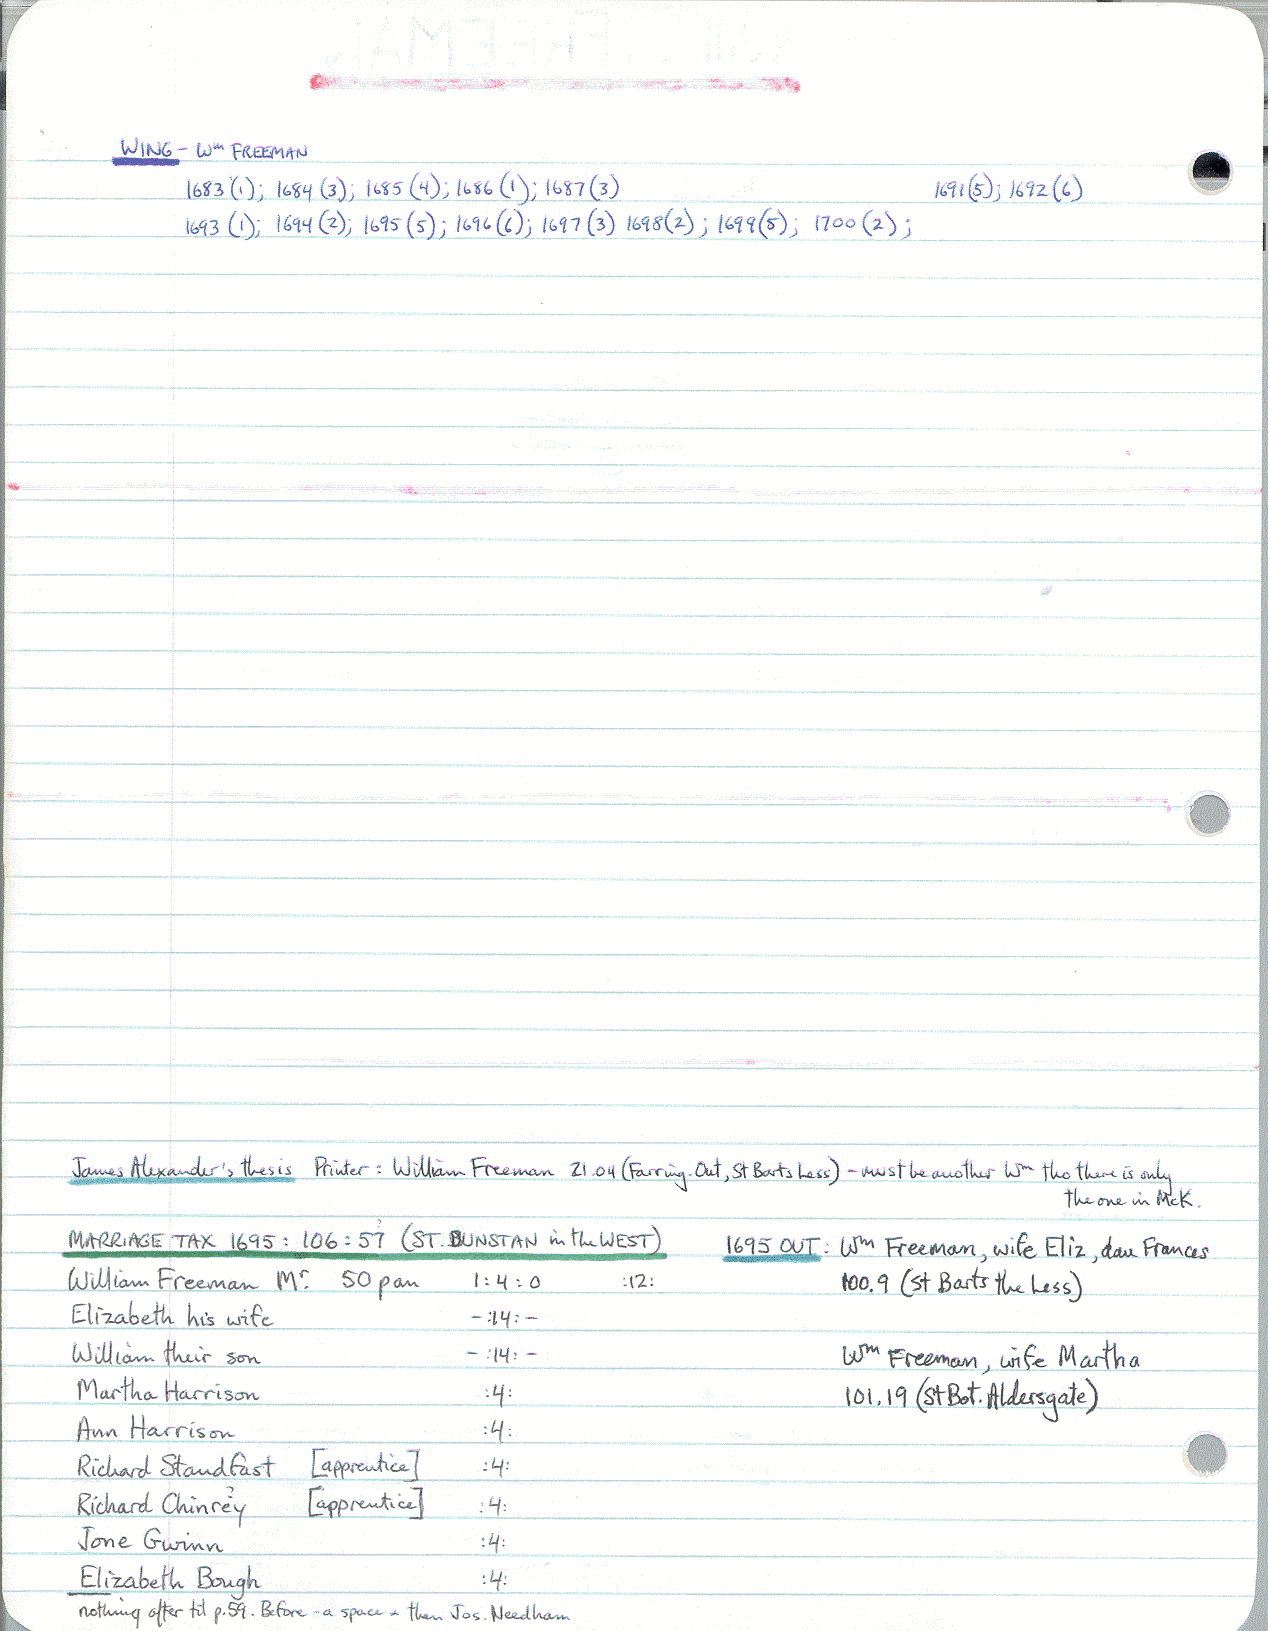 WING - Wm FREEMAN
1683 (1); 1684 (3); 1685 (4); 1686 (1); 1687 (3) 1691 (5); 1692 (6)
1693 (1); 1694 (2); 1695 (5); 1696 (6); 1697 (3) 1698 (2); 1699 (5); 1700 (2);
James Alexander's thesis Printer: William Freeman 21.04 (Farring. Out, St Barts Less) - must be another Wm tho there is only
the one in McK.
MARRIAGE TAX 1695: 106: 57? (ST. DUNSTAN in the WEST)
William Freeman Mr. 50 pan 1:4:0 :12:
Elizabeth his wife - :14: -
William their son - :14: -
Martha Harrison :4:
Ann Harrison :4:
Richard Standfast [apprentice] :4:
Richard Chinrey? [apprentice] :4:
Jone Gwinn :4:
Elizabeth Bough :4:
nothing after til p.59. Before - a space + then Jos. Needham
1695 OUT: Wm Freeman, wife Eliz, dau Frances
100.9 (St Barts the Less)
Wm Freeman, wife Martha
101.19 (St Bot. Aldersgate)